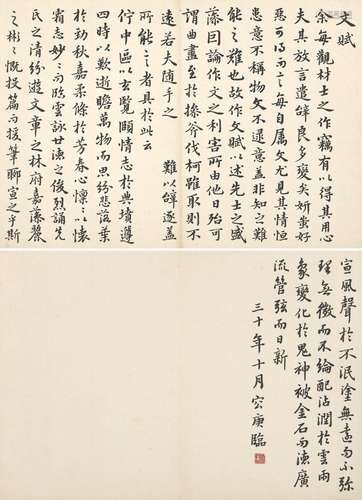 文賦
余每觀材士之作竊有以得其用心
夫其放言遣辭良多變矣妍蚩好
惡可得而言每自属文尤見其情恒
患意不稱物文不逮意蓋非知之難
能之難也故作文賦以述先士之盛
藻因論作文之利害所由他日殆可
謂曲盡至於操斧伐柯雖取則不
遠若夫隨手之 難以辭逐蓋
所能言者具於此云
佇中區以玄覽頤情志於典墳遵
四時以歎逝瞻萬物而思紛悲落葉
於勁秋嘉柔條於芳春心懍懍以懷
霜志妙妙而臨雲詠世德之俊烈誦先
民之清芬遊文章之林府嘉藻麗
之彬彬慨投篇而援筆聊宣之乎斯
宣風聲於不泯塗無遠而不弥
理無微而不綸配沾潤於雲雨
象變化於鬼神被金石而德廣
流管弦而日新
三十年十月 庚臨